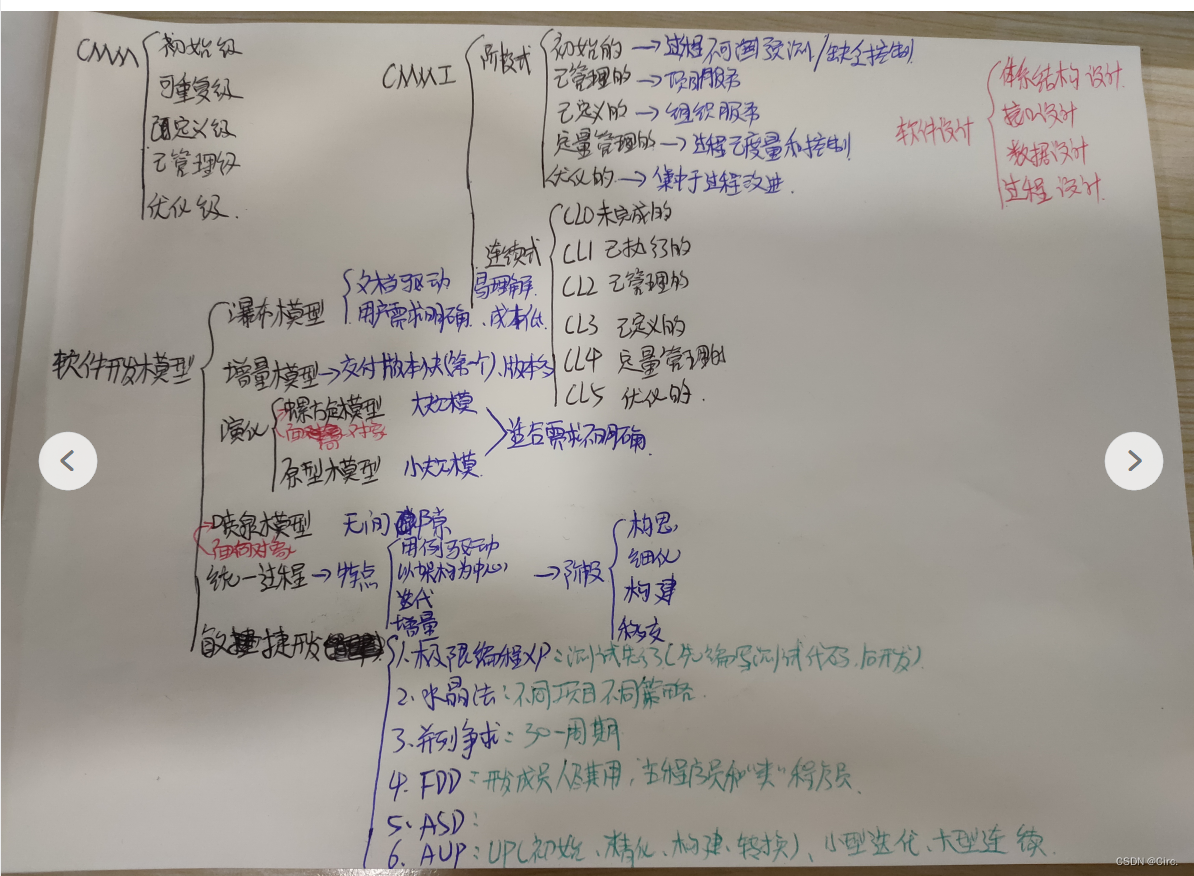 CMM
初始级
可重复级
已定义级
已管理级
优化级.
CMMI
阶段式
初始的→过程不可预测/缺乏控制
已管理的→项目服务
已定义的→组织服务
定量管理的→过程已度量和控制
优化的→集中于过程改进.
连续式
CL0 未完成的
CL1 已执行的
CL2 已管理的
CL3 已定义的
CL4 定量管理的
CL5 优化的.
软件设计
体系结构设计.
接口设计
数据设计
过程设计.
软件开发模型
瀑布模型
文档驱动 易理解.
用户需求明确、成本低.
增量模型→交付版本快(第一个)、版本多
演化
螺旋模型 大规模
面 对象
原型模型 小规模
适合需求不明确.
喷泉模型 无间隙
面向对象
统一过程→特点
用例驱动
以架构为中心
迭代
增量
→阶段
构思
细化
构建
移交
敏捷开发
1.极限编程XP:测试先行(先编写测试代码.后开发)
2.水晶法:不同项目不同策略.
3.并列争求:30一周期
4.FDD:开发成员 ,主程序员和"类"程序员.
5.ASD:
6.AUP:UP(初始、精化、构建、转换)、小型迭代、大型连续.
CSDN @Circ.